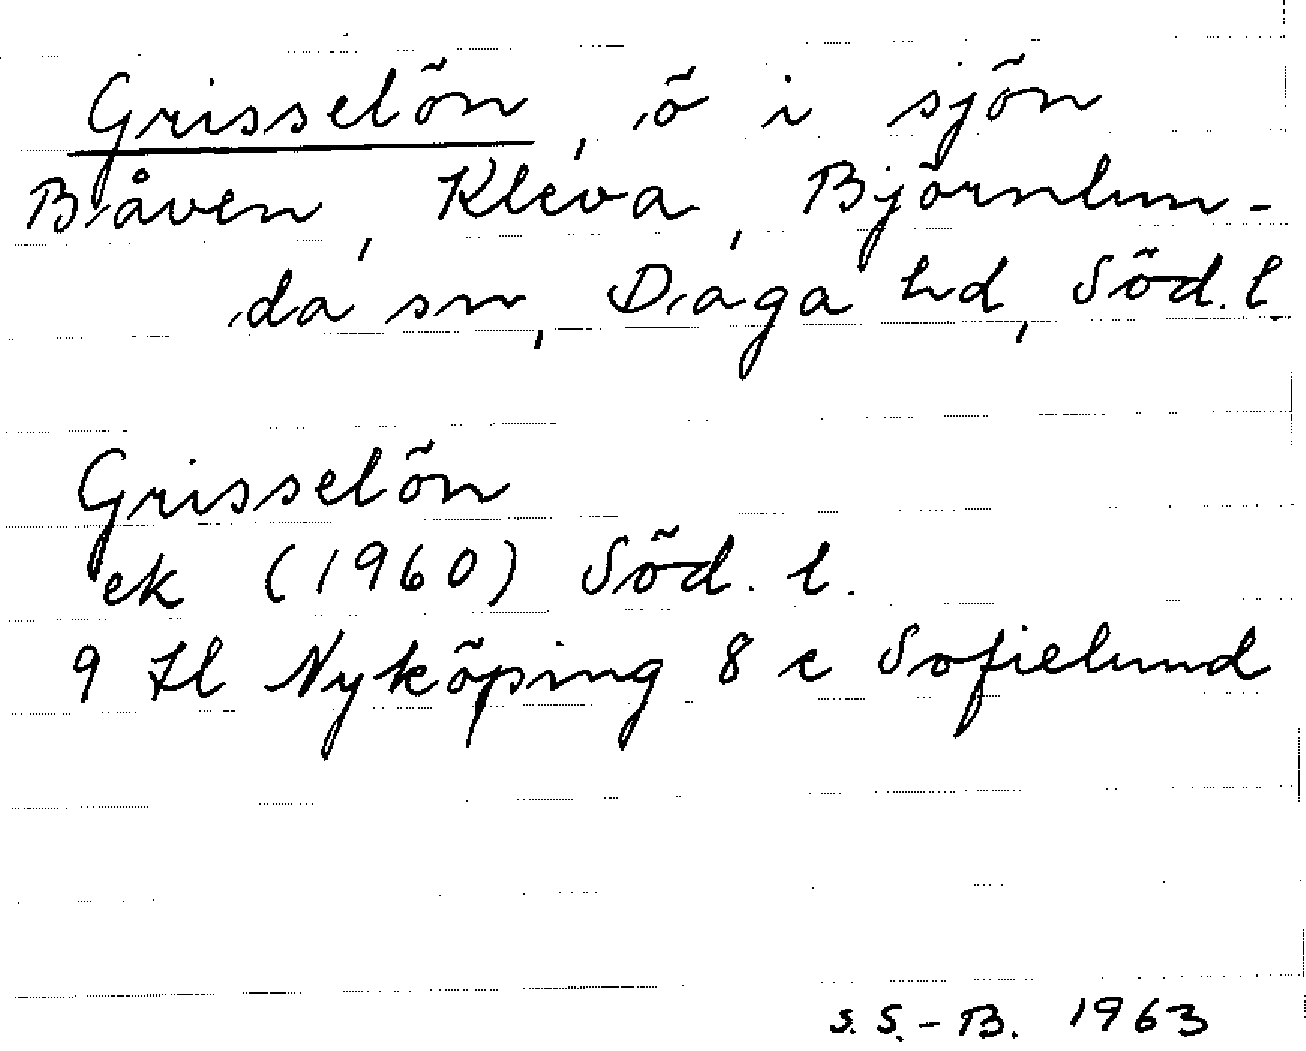 Grisselön, ö i sjön
Båven, Kleva, Björnlun-
da sn, Daga hd, Söd. l.
Grisselön
ek (1960) Söd. l.
9 H Nyköping 8 c Sofielund
S. S.-B. 1963